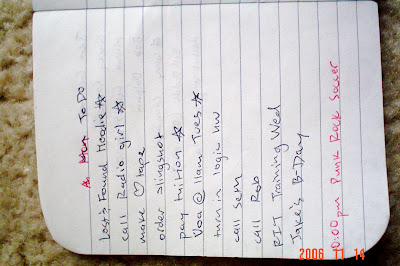 To Do
Lost & Found Hoodie ☆
call Radio girl ☆
make ♡ tape
order slingshot
pay tuition ☆
@ 11am Tues ☆
turn in logic hw
call
call Rob
Training Wed
Jake's B-Day
10:00 pm Punk Rock Soccer
2006 11 14